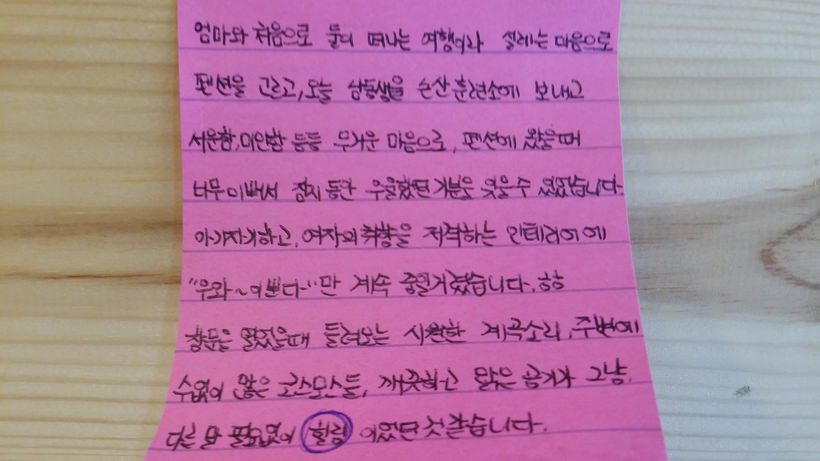 엄마와 처음으로 둘이 떠나는 여행이라 설레는 마음으로
펜션을 고르고, 오늘 남동생을 논산훈련소에 보내고
서운함, 미안함 등등 무거운 마음으로, 펜션에 왔을때
너무이뻐서 잠시 동안 우울했던 기분을 잊을수 있었습니다.
아기자기하고, 여자의 취향을 저격하는 인테리어에
"우와~이쁘다"만 계속 중얼거렸습니다. 항상
창문을 열었을때 들려오는 시원한 계곡소리, 주변에
수없이 많은 코스모스들, 깨끗하고 맑은 공기가 그냥.
다른 말 필요없이 힐링 이었던 것 같습니다.